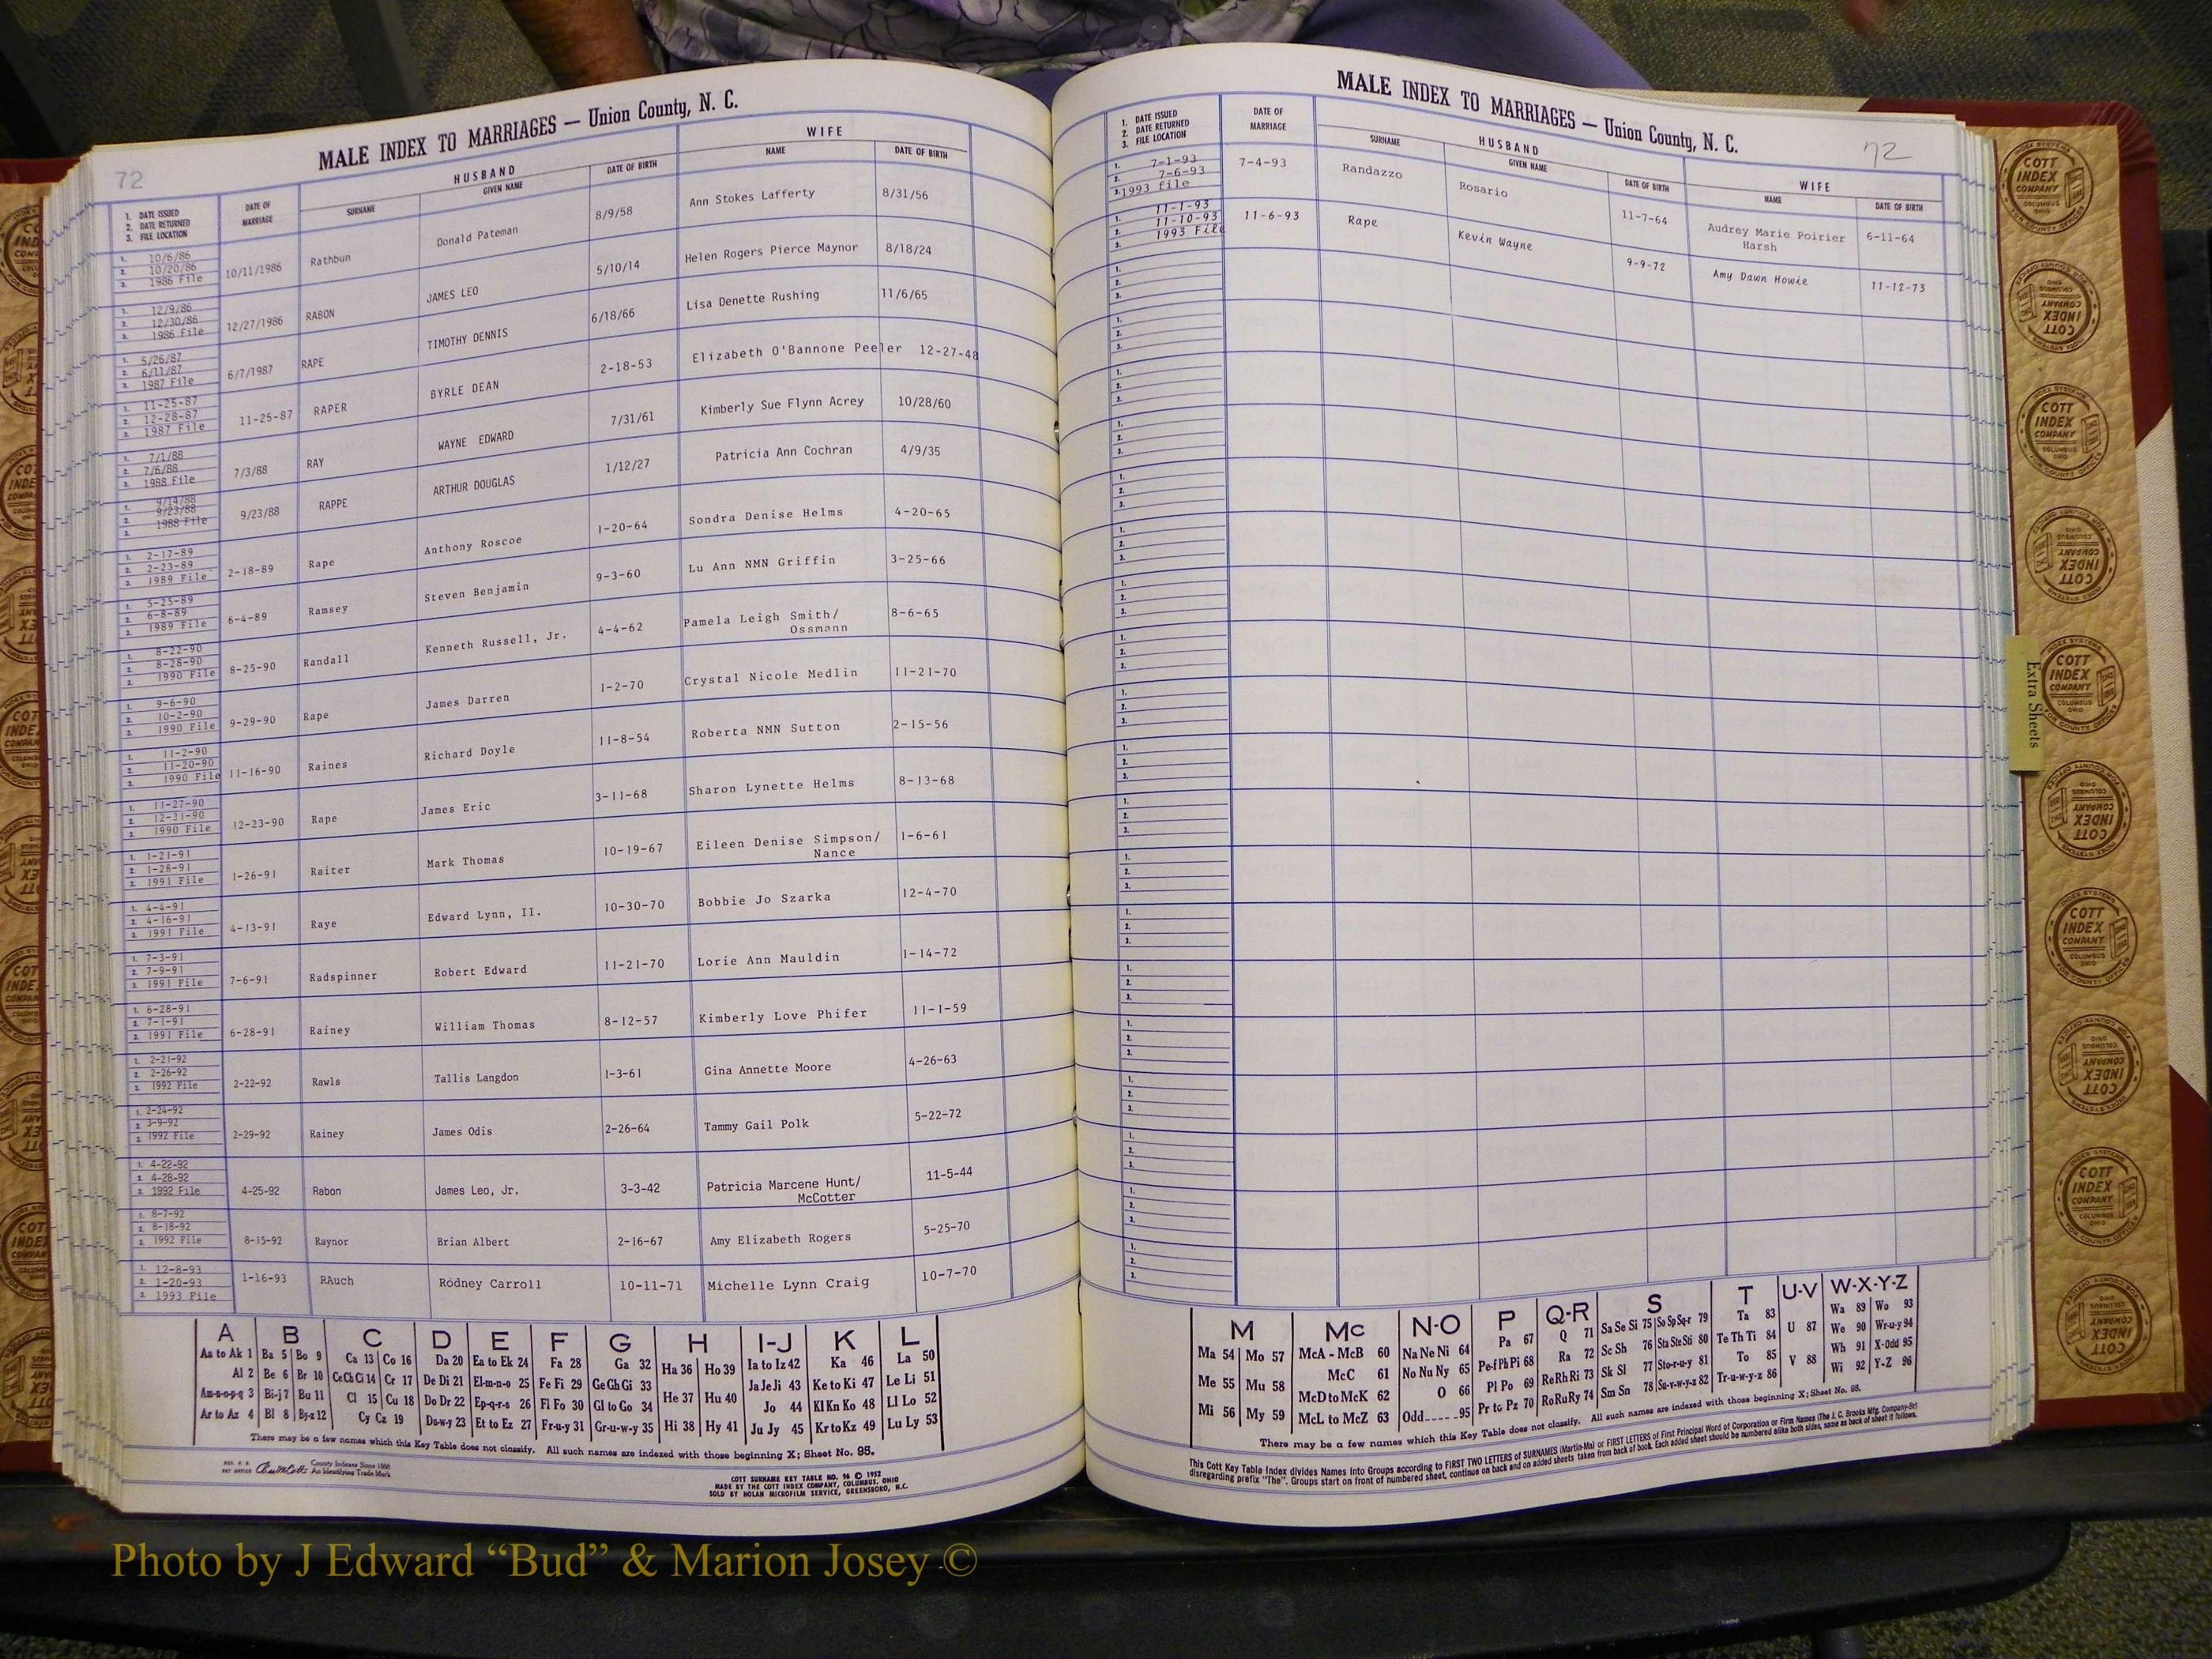 MALE INDEX TO MARRIAGES — Union County, N. C.
72
1. DATE ISSUED
2. DATE RETURNED
3. FILE LOCATION
DATE OF MARRIAGE
HUSBAND
SURNAME GIVEN NAME DATE OF BIRTH
WIFE
NAME DATE OF BIRTH
1. 10/6/86
2. 10/20/86
3. 1986 File
10/11/1986 Rathbun Donald Pateman 8/9/58 Ann Stokes Lafferty 8/31/56
1. 12/9/86
2. 12/30/86
3. 1986 File
12/27/1986 RABON JAMES LEO 5/10/14 Helen Rogers Pierce Maynor 8/18/24
1. 5/26/87
2. 6/11/87
3. 1987 File
6/7/1987 RAPE TIMOTHY DENNIS 6/18/66 Lisa Denette Rushing 11/6/65
1. 11-25-87
2. 12-28-87
3. 1987 File
11-25-87 RAPER BYRLE DEAN 2-18-53 Elizabeth O'Bannone Peeler 12-27-48
1. 7/1/88
2. 7/6/88
3. 1988 File
7/3/88 RAY WAYNE EDWARD 7/31/61 Kimberly Sue Flynn Acrey 10/28/60
1. 9/14/88
2. 9/23/88
1988 File
3.
9/23/88 RAPPE ARTHUR DOUGLAS 1/12/27 Patricia Ann Cochran 4/9/35
1. 2-17-89
2. 2-23-89
3. 1989 File
2-18-89 Rape Anthony Roscoe 1-20-64 Sondra Denise Helms 4-20-65
1. 5-25-89
2. 6-8-89
3. 1989 File
6-4-89 Ramsey Steven Benjamin 9-3-60 Lu Ann NMN Griffin 3-25-66
1. 8-22-90
2. 8-28-90
1990 File
3.
8-25-90 Randall Kenneth Russell, Jr. 4-4-62 Pamela Leigh Smith/ 8-6-65
Ossmann
1. 9-6-90
2. 10-2-90
3. 1990 File
9-29-90 Rape James Darren 1-2-70 Crystal Nicole Medlin 11-21-70
1. 11-2-90
2. 11-20-90
3. 1990 File
11-16-90 Raines Richard Doyle 11-8-54 Roberta NMN Sutton 2-15-56
1. 11-27-90
2. 12-31-90
3. 1990 File
12-23-90 Rape James Eric 3-11-68 Sharon Lynette Helms 8-13-68
1. 1-21-91
2. 1-28-91
3. 1991 File
1-26-91 Raiter Mark Thomas 10-19-67 Eileen Denise Simpson/ 1-6-61
Nance
1. 4-4-91
2. 4-16-91
3. 1991 File
4-13-91 Raye Edward Lynn, II. 10-30-70 Bobbie Jo Szarka 12-4-70
1. 7-3-91
2. 7-9-91
3. 1991 File
7-6-91 Radspinner Robert Edward 11-21-70 Lorie Ann Mauldin 1-14-72
1. 6-28-91
2. 7-1-91
3. 1991 File
6-28-91 Rainey William Thomas 8-12-57 Kimberly Love Phifer 11-1-59
1. 2-21-92
2. 2-26-92
3. 1992 File
2-22-92 Rawls Tallis Langdon 1-3-61 Gina Annette Moore 4-26-63
1. 2-24-92
2. 3-9-92
3. 1992 File
2-29-92 Rainey James Odis 2-26-64 Tammy Gail Polk 5-22-72
1. 4-22-92
2. 4-28-92
3. 1992 File
4-25-92 Rabon James Leo, Jr. 3-3-42 Patricia Marcene Hunt/ 11-5-44
McCotter
1. 8-7-92
2. 8-18-92
3. 1992 File
8-15-92 Raynor Brian Albert 2-16-67 Amy Elizabeth Rogers 5-25-70
1. 12-8-93
2. 1-20-93
3. 1993 File
1-16-93 RAuch Rodney Carroll 10-11-71 Michelle Lynn Craig 10-7-70
A B C D E F G H I-J K L
Aa to Ak 1 Ba 5 Bo 9 Ca 13 Co 16 Da 20 Ea to Ek 24 Fa 28 Ga 32 Ha 36 Ho 39 Ia to Iz 42 Ka 46 La 50
Al 2 Be 6 Br 10 Ce Ch Ci 14 Cr 17 De Di 21 El-m-n-o 25 Fe Fi 29 Ge Gh Gi 33 He 37 Hu 40 Ja Je Ji 43 Ke to Ki 47 Le Li 51
Am-n-o-p-q 3 Bi-j 7 Bu 11 Cl 15 Cu 18 Do Dr 22 Ep-q-r-s 26 Fl Fo 30 Gl to Go 34 Jo 44 Kl Kn Ko 48 Ll Lo 52
Ar to Az 4 Bl 8 By-z 12 Cy Cz 19 Du-w-y 23 Et to Ez 27 Fr-u-y 31 Gr-u-w-y 35 Hi 38 Hy 41 Ju Jy 45 Kr to Kz 49 Lu Ly 53
There may be a few names which this Key Table does not classify. All such names are indexed with those beginning X; Sheet No. 95.
County Indexes Since 1888
An Identifying Trade Mark
COTT SURNAME KEY TABLE NO. 96 © 1952
MADE BY THE COTT INDEX COMPANY, COLUMBUS, OHIO
SOLD BY NOLAN MICROFILM SERVICE, GREENSBORO, N.C.
MALE INDEX TO MARRIAGES — Union County, N. C.
72
1. DATE ISSUED
2. DATE RETURNED
3. FILE LOCATION
DATE OF MARRIAGE
HUSBAND
SURNAME GIVEN NAME DATE OF BIRTH
WIFE
NAME DATE OF BIRTH
1. 7-1-93
2. 7-6-93
3. 1993 file
7-4-93 Randazzo Rosario 11-7-64 Audrey Marie Poirier 6-11-64
Harsh
11-1-93
1. 11-10-93
2. 1993 File
3.
11-6-93 Rape Kevin Wayne 9-9-72 Amy Dawn Howie 11-12-73
M Mc N-O P Q-R S T U-V W-X-Y-Z
Ma 54 Mo 57 McA - McB 60 Na Ne Ni 64 Pa 67 Q 71 Sa Se Si 75 So Sp Sq-r 79 Ta 83 U 87 Wa 89 Wo 93
Me 55 Mu 58 McC 61 No Nu Ny 65 Pe-f Ph Pi 68 Ra 72 Sc Sh 76 Sta Ste Sti 80 Te Th Ti 84 We 90 Wr-u-y 94
McD to McK 62 O 66 Pl Po 69 Re Rh Ri 73 Sk Sl 77 Sto-r-u-y 81 To 85 V 88 Wh 91 X-Odd 95
Mi 56 My 59 McL to McZ 63 Odd-----95 Pr to Pz 70 Ro Ru Ry 74 Sm Sn 78 Su-v-w-y-z 82 Tr-u-w-y-z 86 Wi 92 Y-Z 96
There may be a few names which this Key Table does not classify. All such names are indexed with those beginning X; Sheet No. 95.
This Cott Key Table Index divides Names into Groups according to FIRST TWO LETTERS of SURNAMES (Martin-Ma) or FIRST LETTERS of First Principal Word of Corporation or Firm Names (The J. C. Brooks Mfg. Company-Br)
disregarding prefix "The". Groups start on front of numbered sheet, continue on back and on added sheets taken from back of book. Each added sheet should be numbered alike both sides, same as back of sheet it follows.
Extra Sheets
COTT INDEX COMPANY
COLUMBUS OHIO
INDEX SYSTEMS
FOR COUNTY OFFICES
Photo by J Edward “Bud” & Marion Josey ©